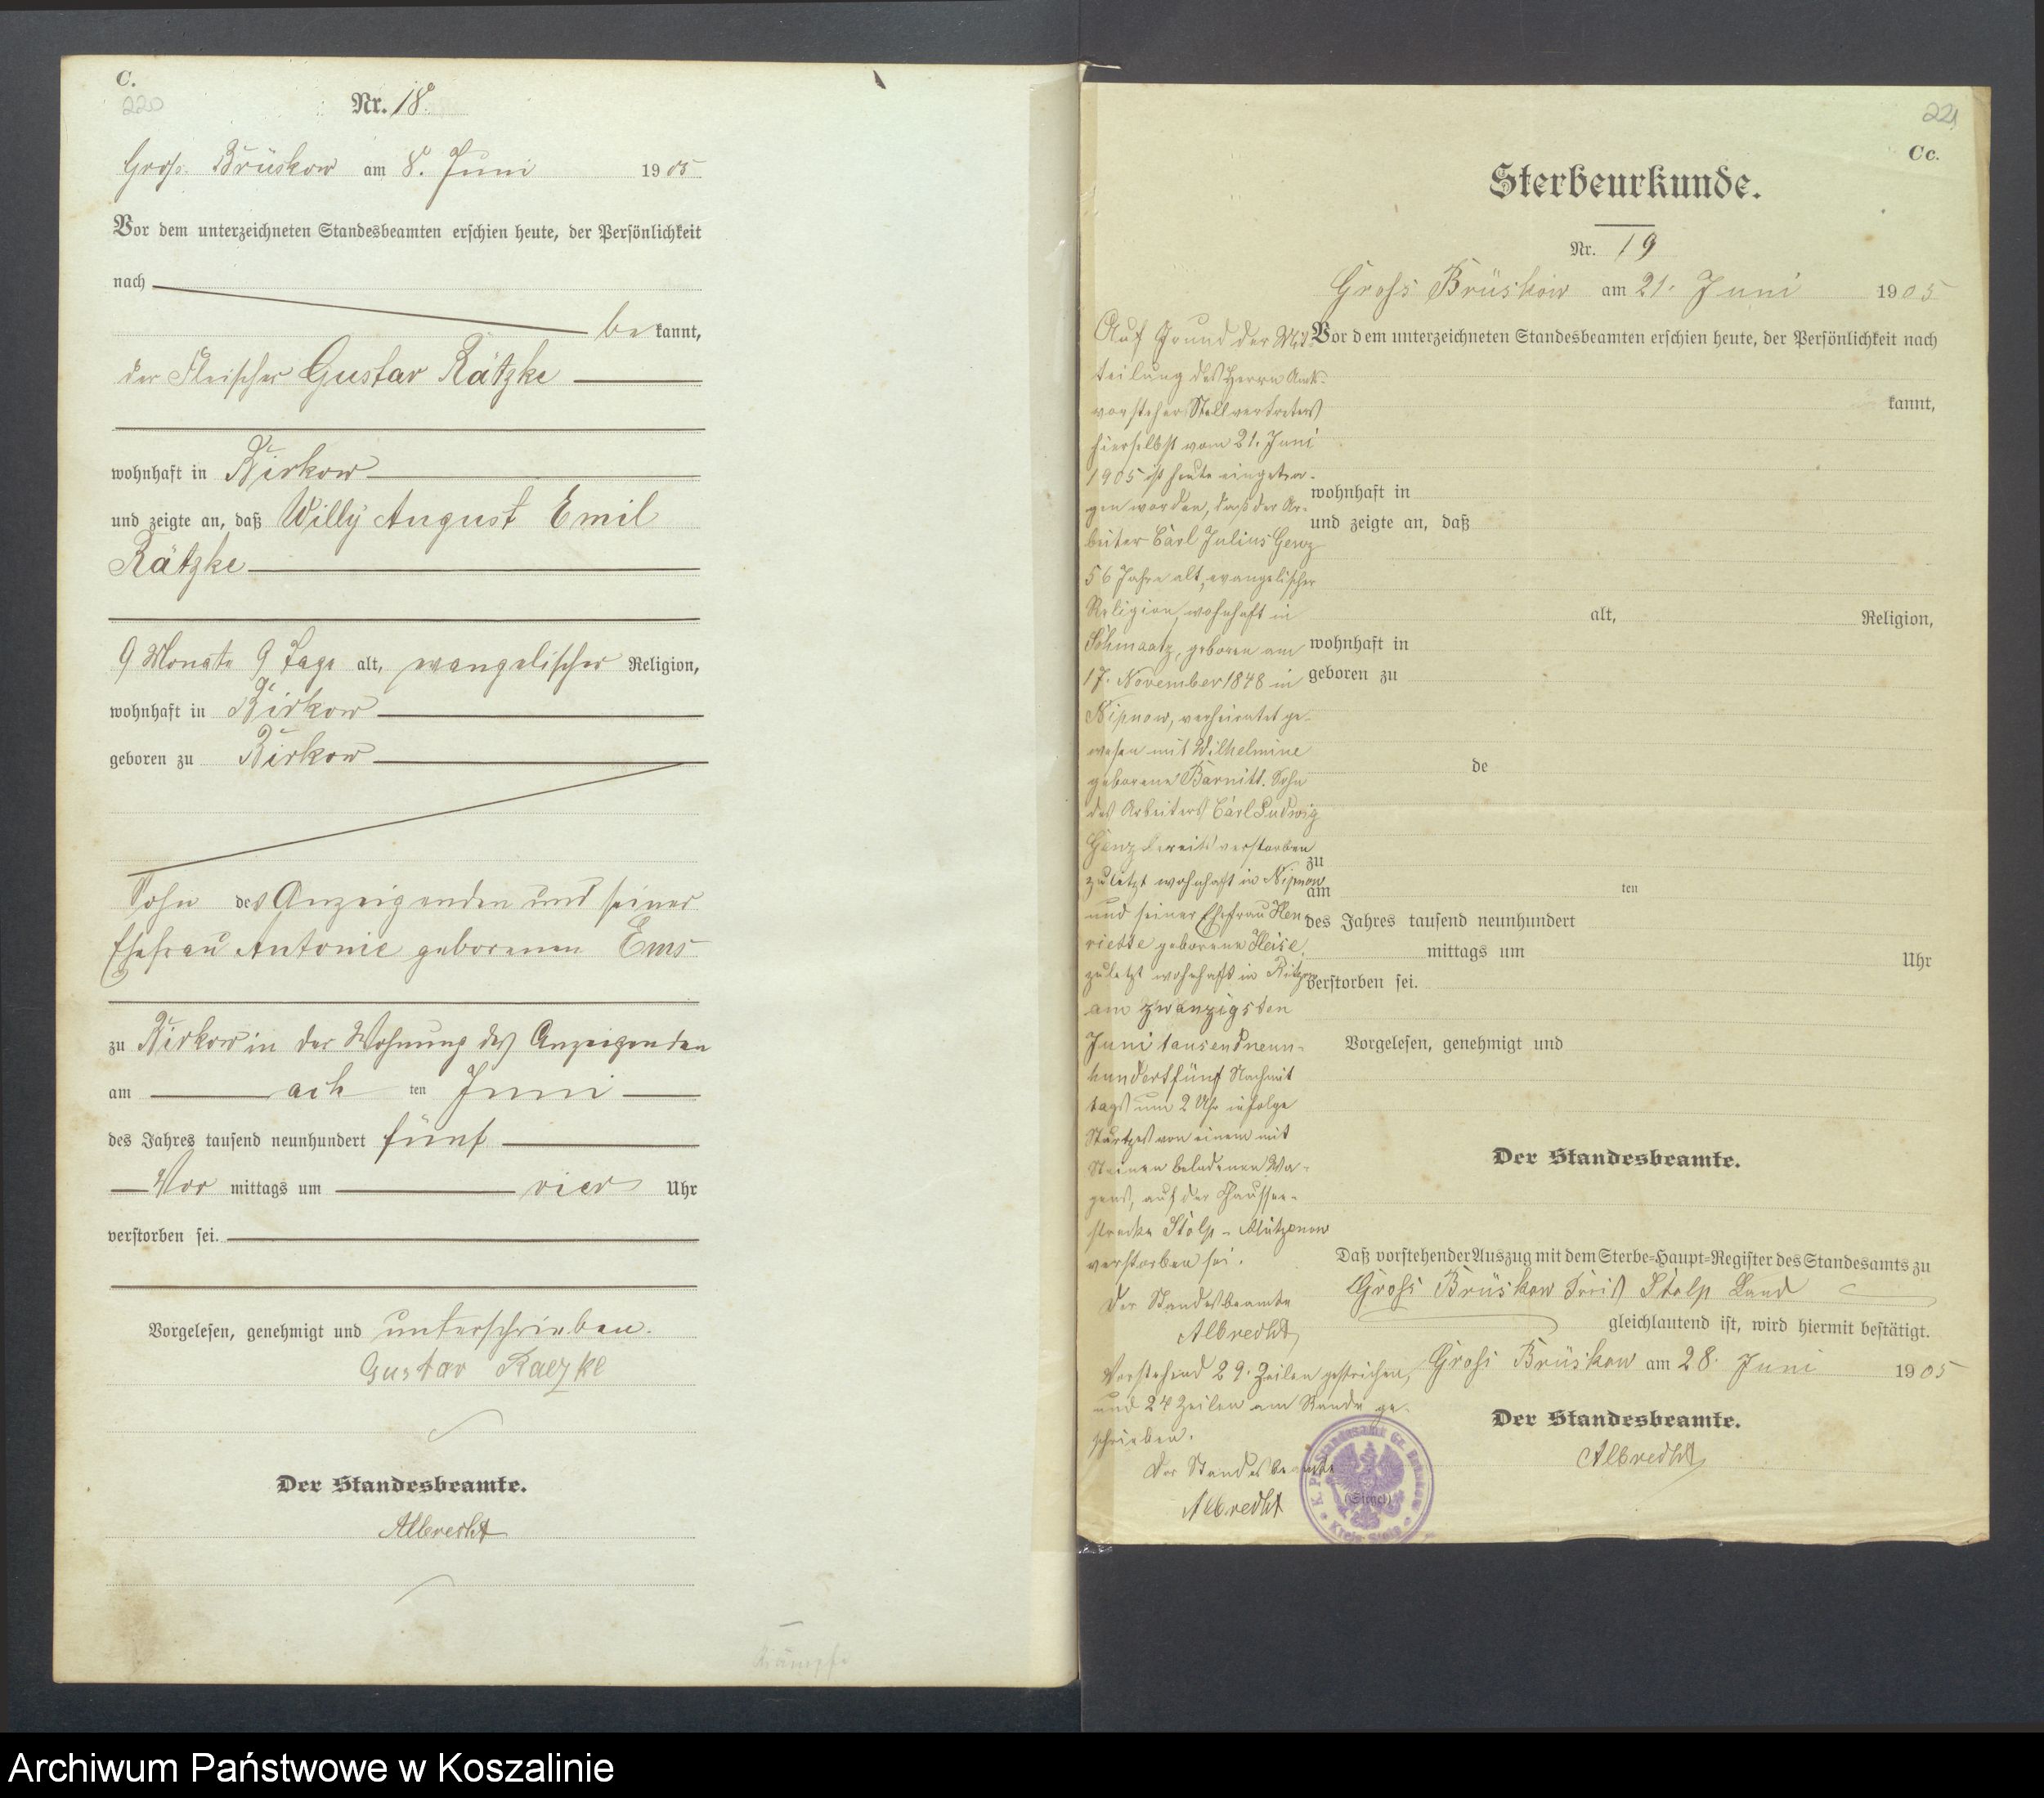 C.
220
Nr. 18.
Gross Brüskow am 8. Juni 1905
Vor dem unterzeichneten Standesbeamten erschien heute, der Persönlichkeit
nach
bekannt,
der Fleischer Gustav Rätzke
wohnhaft in Birkow
und zeigte an, daß Willy August Emil
Rätzke
9 Monate 9 Tage alt, evangelischer Religion,
wohnhaft in Birkow
geboren zu Birkow
Sohn des Anzeigenden und seiner
Ehefrau Antonie geborenen Ems
zu Birkow in der Wohnung des Anzeigenden
am ach ten Juni
des Jahres tausend neunhundert fünf
Vor mittags um vier Uhr
verstorben sei.
Vorgelesen, genehmigt und unterschrieben.
Gustav Raezke
Der Standesbeamte.
Albrecht
Krämpfe
221
Cc.
Sterbeurkunde.
Nr. 19
Gross Brüskow am 21. Juni 1905
Vor dem unterzeichneten Standesbeamten erschien heute, der Persönlichkeit nach
kannt,
wohnhaft in
und zeigte an, daß
alt, Religion,
wohnhaft in
geboren zu
de
zu
am ten
des Jahres tausend neunhundert
mittags um Uhr
verstorben sei.
Vorgelesen, genehmigt und
Der Standesbeamte.
Auf Grund der Mit-
teilung des Herrn Amts-
vorsteher Stellvertreters
hierselbst vom 21. Juni
1905 ist heute eingetra-
gen worden, daß der Ar-
beiter Carl Julius Genz
56 Jahre alt, evangelischer
Religion, wohnhaft in
Schmaatz, geboren am
17. November 1848 in
Nipnow, verheiratet ge-
wesen mit Wilhelmine
geborene Barnitt. Sohn
des Arbeiters Carl Ludwig
Genz bereits verstorben
zuletzt wohnhaft in Nipnow
und seiner Ehefrau Hen-
riette geborene Heise,
zuletzt wohnhaft in Ritzow
am zwanzigsten
Juni tausendneun-
hundertfünf Nachmit
tags um 2 Uhr infolge
Sturtzes von einem mit
Steinen beladenen Wa-
gens, auf der Chaussee-
strecke Stolp - Mützenow
verstorben sei.
Der Standesbeamte
Albrecht
Vorstehend 29. Zeilen gestrichen,
und 24 Zeilen am Rande ge-
schrieben.
Der Standesbeamte
Albrecht
Daß vorstehender Auszug mit dem Sterbe-Haupt-Register des Standesamts zu
Gross Brüskow Kreis Stolp Land
gleichlautend ist, wird hiermit bestätigt.
Gross Brüskow am 28. Juni 1905
Der Standesbeamte.
Albrecht
(Siegel)
Archiwum Państwowe w Koszalinie